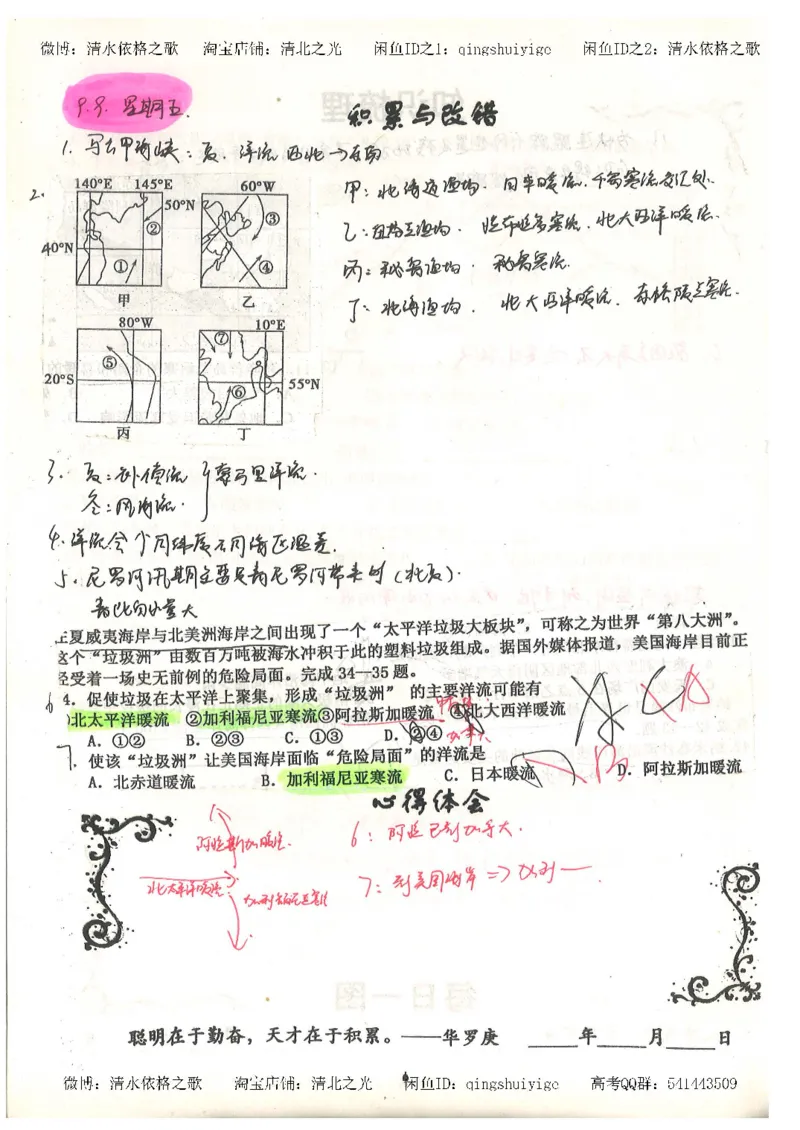 微博：清水依格之歌 淘宝店铺：清北之光 闲鱼ID之1：qingshuiyige 闲鱼ID之2：清水依格之歌
9.9. 星期五.
积累与改错
1. 马六甲海峡：夏：洋流西北→东南
2.
140°E 145°E
50°N
40°N
① ②
甲
60°W
③
④
乙
80°W
20°S
⑤
丙
10°E
55°N
⑦
⑥
丁
甲：北海道渔场. 日本暖流. 千岛寒流交汇处.
乙：纽芬兰渔场. 拉布拉多寒流. 北大西洋暖流.
丙：秘鲁渔场. 秘鲁寒流.
丁：北海渔场. 北大西洋暖流.
3. 夏：补偿流 } 索马里洋流.
冬：风海流.
4. 洋流会个同纬度不同海区温差.
5. 尼罗河汛期主要是青尼罗河带来的（北夏）.
王夏威夷海岸与北美洲海岸之间出现了一个“太平洋垃圾大板块”，可称之为世界“第八大洲”。
这个“垃圾洲”由数百万吨被海水冲积于此的塑料垃圾组成。据国外媒体报道，美国海岸目前正
经受着一场史无前例的危险局面。完成34—35题。
6 4. 促使垃圾在太平洋上聚集，形成“垃圾洲” 的主要洋流可能有
)北太平洋暖流 ②加利福尼亚寒流③阿拉斯加暖流 ④北大西洋暖流
A. ①② B. ②③ C. ①③ D. ②④
7. 使该“垃圾洲”让美国海岸面临“危险局面”的洋流是
A. 北赤道暖流 B. 加利福尼亚寒流 C. 日本暖流 D. 阿拉斯加暖流
心得体会
阿拉斯加暖流.
北太平洋暖流.
加利福尼亚寒流
6：阿拉已到加拿大.
7：到美国海岸 => 加利一
聪明在于勤奋，天才在于积累。——华罗庚 ____年____月____日
微博：清水依格之歌 淘宝店铺：清北之光 闲鱼ID：qingshuiyige 高考QQ群：541443509